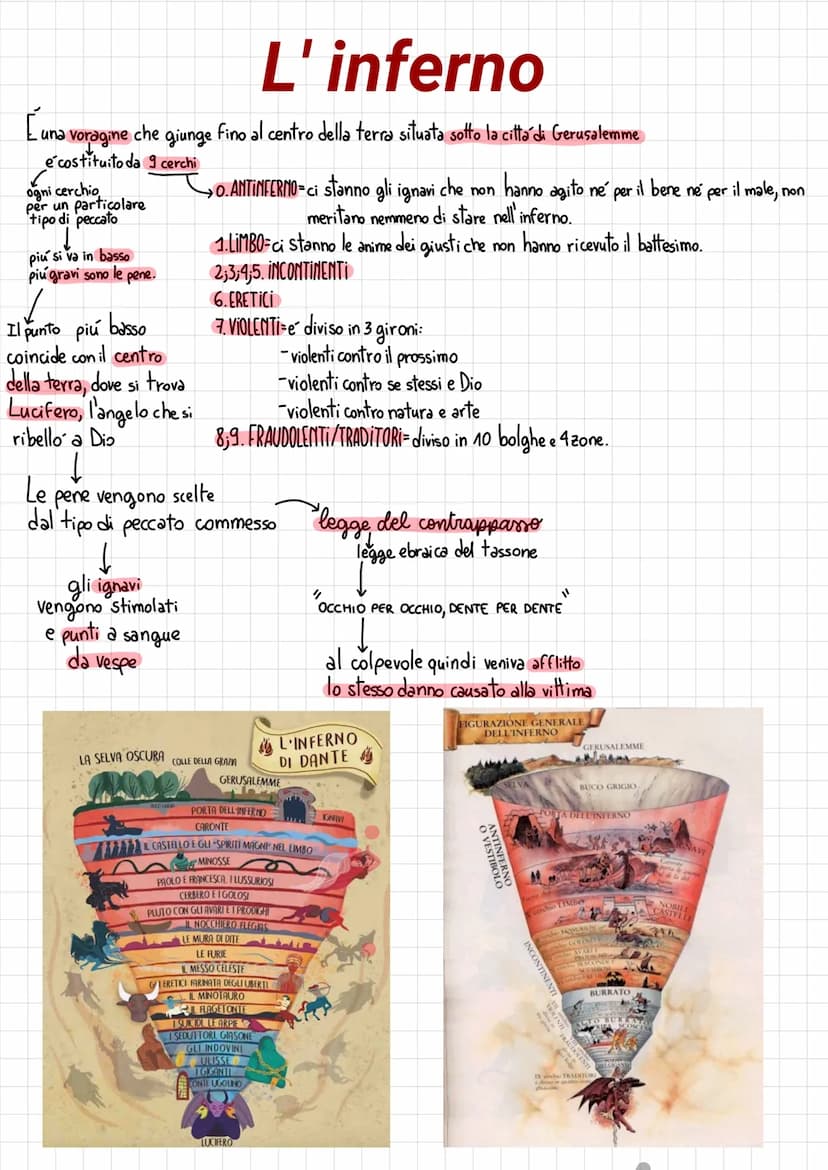 L' inferno
É una voragine che giunge fino al centro della terra situata sotto la cittá di Gerusalemme
é costituito da 9 cerchi
ogni cerchio
per un particolare
tipo di peccato
piú si va in basso
piú gravi sono le pene.
Il punto piú basso
coincide con il centro
della terra, dove si trova
Lucifero, l'angelo che si
ribelló a Dio
0. ANTINFERNO= ci stanno gli ignavi che non hanno agito né per il bene né per il male, non
meritano nemmeno di stare nell'inferno.
1. LIMBO= ci stanno le anime dei giusti che non hanno ricevuto il battesimo.
2;3;4;5. INCONTINENTI
6. ERETICI
7. VIOLENTI= é diviso in 3 gironi:
- violenti contro il prossimo
- violenti contro se stessi e Dio
- violenti contro natura e arte
8;9. FRAUDOLENTI/TRADITORI= diviso in 10 bolghe e 4 zone.
Le pene vengono scelte
dal tipo di peccato commesso
gli ignavi
vengono stimolati
e punti a sangue
da vespe
legge del contrappasso
legge ebraica del tassone
"OCCHIO PER OCCHIO, DENTE PER DENTE"
al colpevole quindi veniva afflitto
lo stesso danno causato alla vittima
L'INFERNO
DI DANTE
LA SELVA OSCURA
COLLE DELLA GRAZIA
GERUSALEMME
PORTA DELL'INFERNO
IGNAVI
CARONTE
IL CASTELLO E GLI "SPIRITI MAGNI" NEL LIMBO
MINOSSE
PAOLO E FRANCESCA, I LUSSURIOSI
CERBERO E I GOLOSI
PLUTO CON GLI AVARI E I PRODIGHI
IL NOCCHIERO FLEGIAS
LE MURA DI DITE
LE FURIE
IL MESSO CELESTE
GLI ERETICI: FARINATA DEGLI UBERTI
IL MINOTAURO
IL FLAGETONTE
I SUICIDI, LE ARPIE
I SEDUTTORI, GIASONE
GLI INDOVINI
ULISSE
I GIGANTI
CONTE UGOLINO
LUCIFERO
FIGURAZIONE GENERALE
DELL'INFERNO
GERUSALEMME
SELVA
BUCO GRIGIO
PORTA DELL'INFERNO
IGNAVI
ANTINFERNO
O VESTIBOLO
LIMBO
NOBILE
CASTELLO
INCONTINENTI
BURRATO
VIOLENTI
IX cerchio TRADITORI